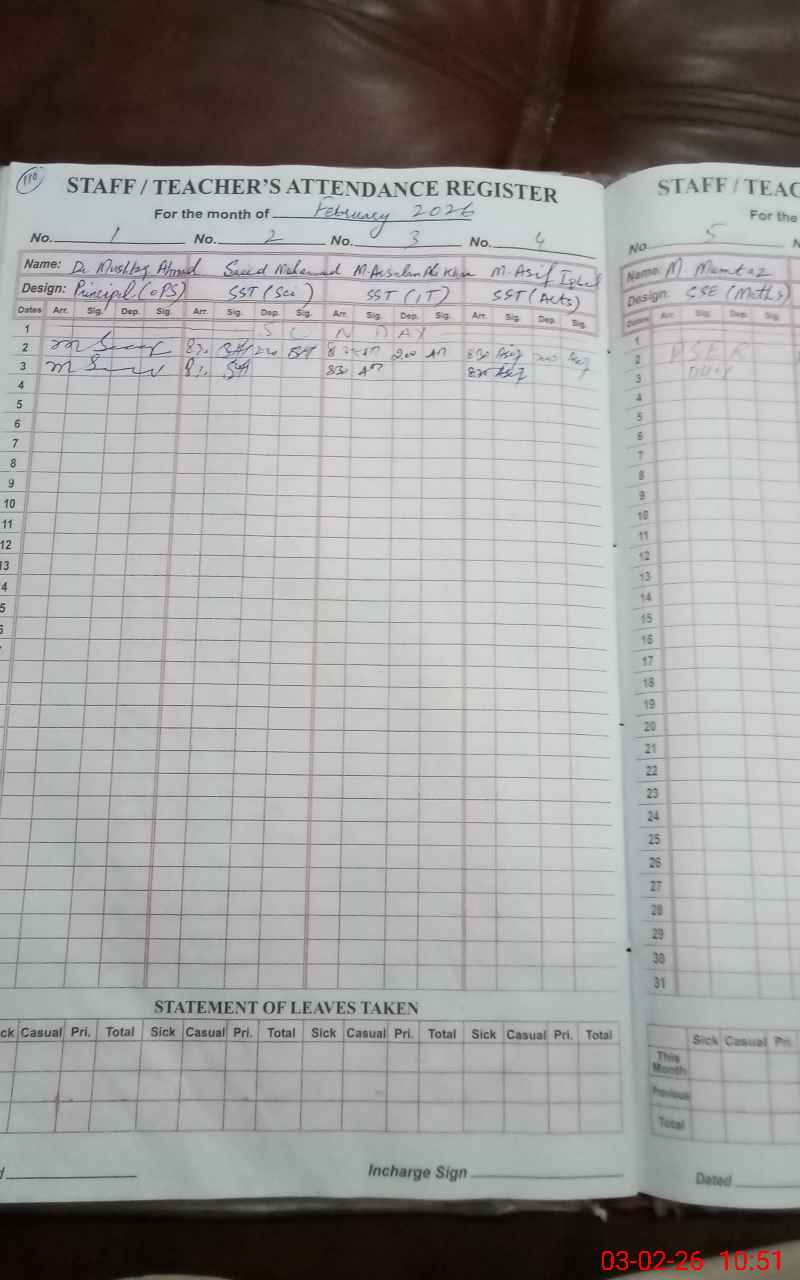 110
STAFF / TEACHER'S ATTENDANCE REGISTER
For the month of February 2026
No. 1 No. 2 No. 3 No. 4
Name: Dr Mushtaq Ahmad Saeed Muhammad M. Arsalan Khan M. Asif Iqbal
Design: Principal (OPS) SST (Sci) SST (IT) SST (Arts)
Dates Arr. Sig. Dep. Sig. Arr. Sig. Dep. Sig. Arr. Sig. Dep. Sig. Arr. Sig. Dep. Sig.
1 SUNDAY
2 830 200 830 Asif
3 830 830 Asif
4
5
6
7
8
9
10
11
12
13
4
5
STATEMENT OF LEAVES TAKEN
ck Casual Pri. Total Sick Casual Pri. Total Sick Casual Pri. Total Sick Casual Pri. Total
Incharge Sign
STAFF / TEAC
For the
No 5
Name: M Mumtaz
Design: SSE (Maths)
Dates Arr. Sig. Dep. Sig.
1
2 PSER
3 Duty
4
5
6
7
8
9
10
11
12
13
14
15
16
17
18
19
20
21
22
23
24
25
26
27
28
29
30
31
Sick Casual Pri
This Month
Previous
Total
Dated
03-02-26 10:51